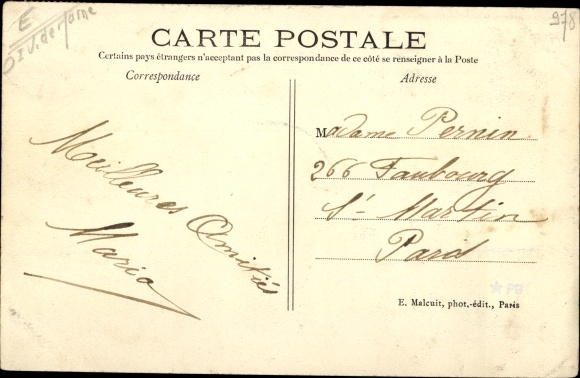 E
978
CARTE POSTALE
Certains pays étrangers n'acceptant pas la correspondance de ce côté se renseigner à la Poste
Correspondance
Adresse
Meilleures Amitiés
Maria
Madame Pernin
266 Faubourg
St Martin
Paris
PB
E. Malcuit, phot.-édit., Paris